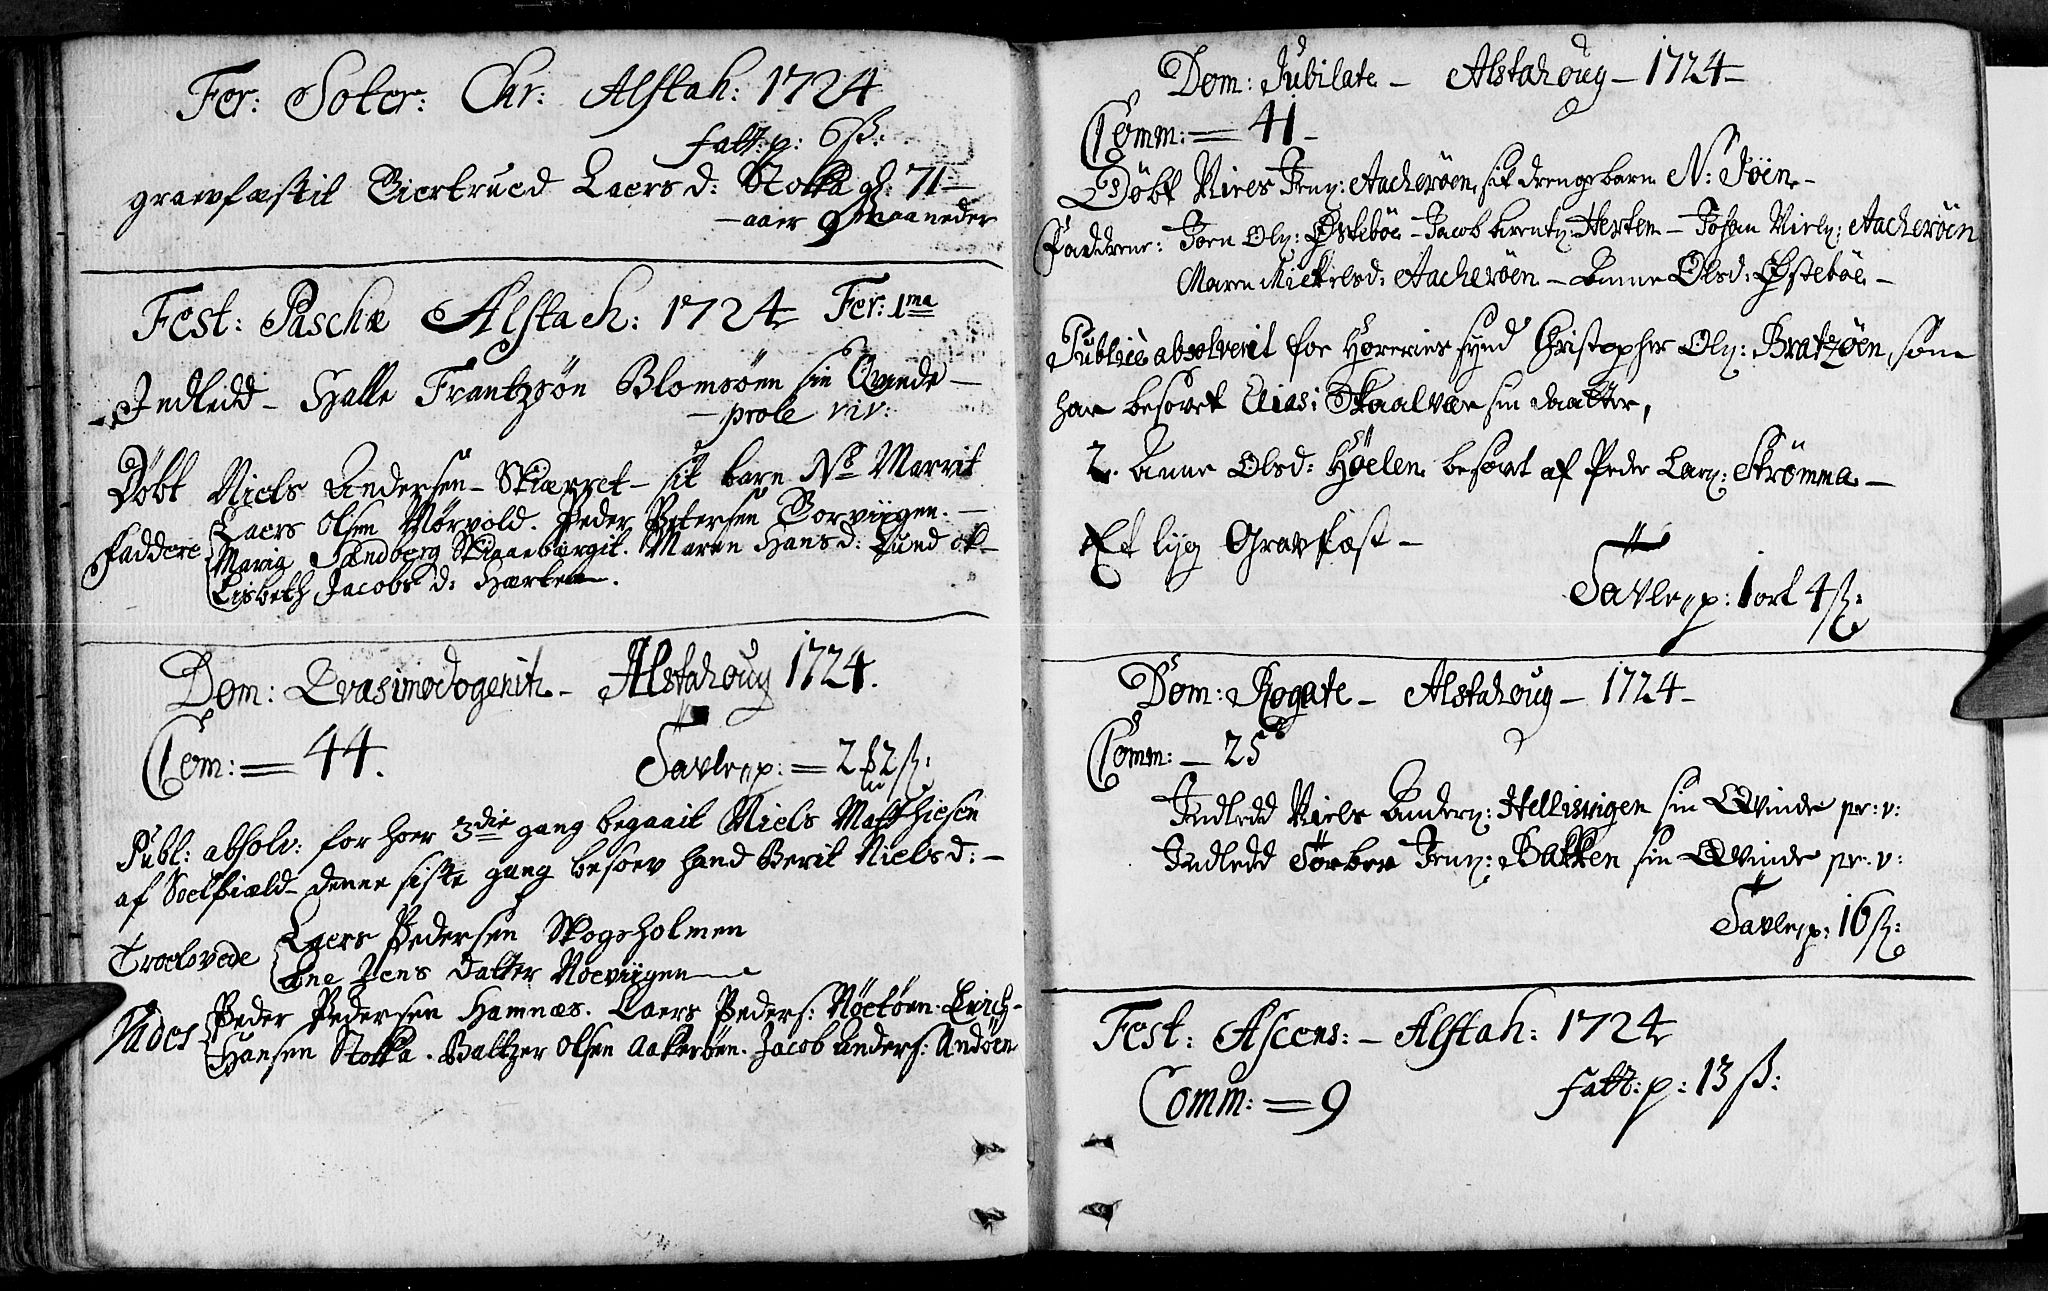 Fer: Soter: Chr: Alstah: 1724
fatt: p: 6ß:
grawfæstit Giertrued Laersd: Stokka gl: 71
aaer 9 maaneder
Fest: Paschæ Alstach: 1724 Fer: 1ma
Indledd – Halle Frantzsøn Blomsøen sin Qvinde –
– prole viv:
Døbt Niels Andersen – Skiærret – sit barn No Marrit
Faddere Laers Olsen Mørvold. Peder Petersen Torviigen. –
Marig Sandberg Skiaaebargit. Maren Hansd: Lund ok –
Lisbeth Jacobsd: Hærten.
Dom: Qvasimodogenitj – Alstahoug 1724.
Com: = 44. Tavlep: = 2 ß:
Publ: absolv: for hoer 3die gang begaait Niels Matthiesen
af Soelfiæld – denne siste gang besoev hand Berit Nielsd: –
Troelovede Laers Pedersen Skogsholmen
Ane Jens Datter Noeviigen
Vades Peder Pedersen Hamnæs. Laers Peders: Røetøen. Erich –
Hansen Stokka. Baltzer Olsen Aakerøen. Jacob Anders: Andøen
Dom: Jubilate – Alstahoug – 1724 –
Comm: = 41 –
Døbt Niels Jens: Aacherøen, sit drengebarn N: Jøen –
Faddrene: Joen Ols: Østebøe – Jacob Arentz: Herten – Johan Niels: Aacherøen
Maren Mickelsd: Aacherøen – Anne Olsd: Østebøe –
Publicè absolverit for Horeries synd Christopher Ols: Bratzøen, som
har besovet Elias: Skaalvær sin daatter,
2. Anne Olsd: Høelen besovt af Peder Lars: Strømma –
Et liig Gravfæst –
Tavlep: 1 ort 4ß:
Dom: Rogate – Alstahoug – 1724 –
Comm: – 25
Indledd Niels Anders: Hellisvigen sin Qvinde pr: v:
Indledd Torber Jens: Bakken sin Qvinde pr: v:
Tavlep: 16ß:
Fest: Ascens: – Alstah: 1724
Comm: = 9 fatt: p: 13 ß: